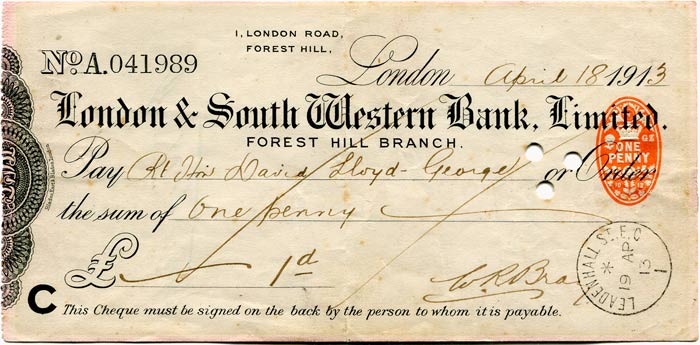 1, LONDON ROAD,
FOREST HILL,
No. A.041989
London April 18 1913
London & South Western Bank, Limited.
FOREST HILL BRANCH.
Pay Rt Hon David Lloyd-George or Order
ONE PENNY
the sum of One penny
£ 1d
W R Bray
LEADENHALL ST. E.C
19 AP
13
1
*
C This Cheque must be signed on the back by the person to whom it is payable.